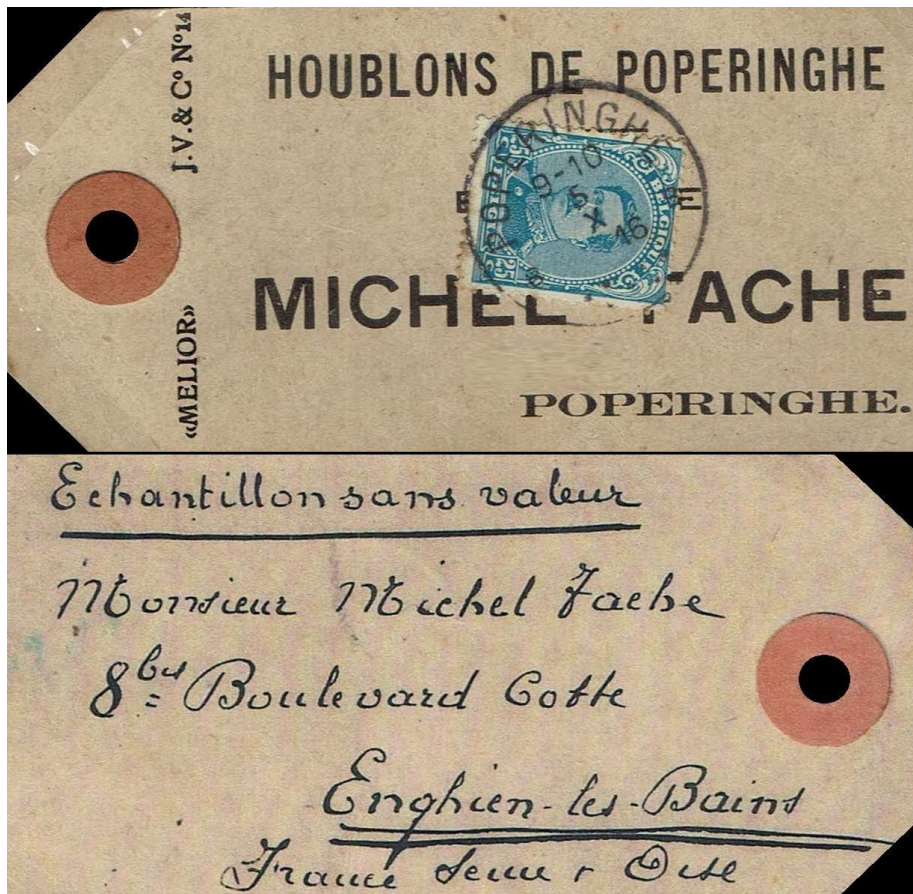 J.V.&C° N°14
«MELIOR»
HOUBLONS DE POPERINGHE
POPERINGHE
9-10
5
X
16
25 BELGIQUE
BELGIË 25
MICHEL FACHE
POPERINGHE.
Echantillon sans valeur
Monsieur Michel Fache
8bis Boulevard Cotte
Enghien-les-Bains
France Seine & Oise